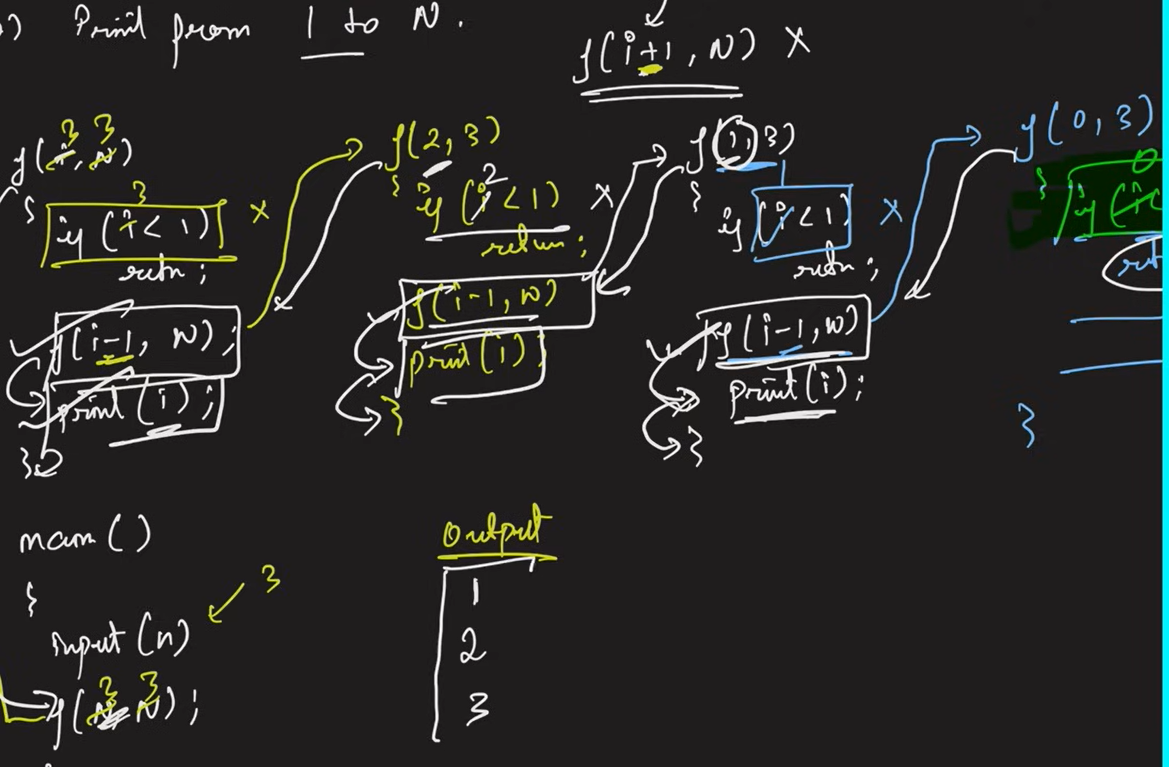 ) Print from 1 to N.
f(i+1, N) X
3 3
f(i, N)
{
3
if (i < 1) X
retn;
f(i-1, N);
print(i);
}
f(2, 3)
{
2
if (i < 1) X
return;
f(i-1, N)
print(i);
}
f(1, 3)
{
if (i < 1) X
retn;
f(i-1, N)
print(i);
}
f(0, 3)
{
0
if (i <
ret
}
main()
{
input(n) 3
3 3
f(N, N);
Output
1
2
3